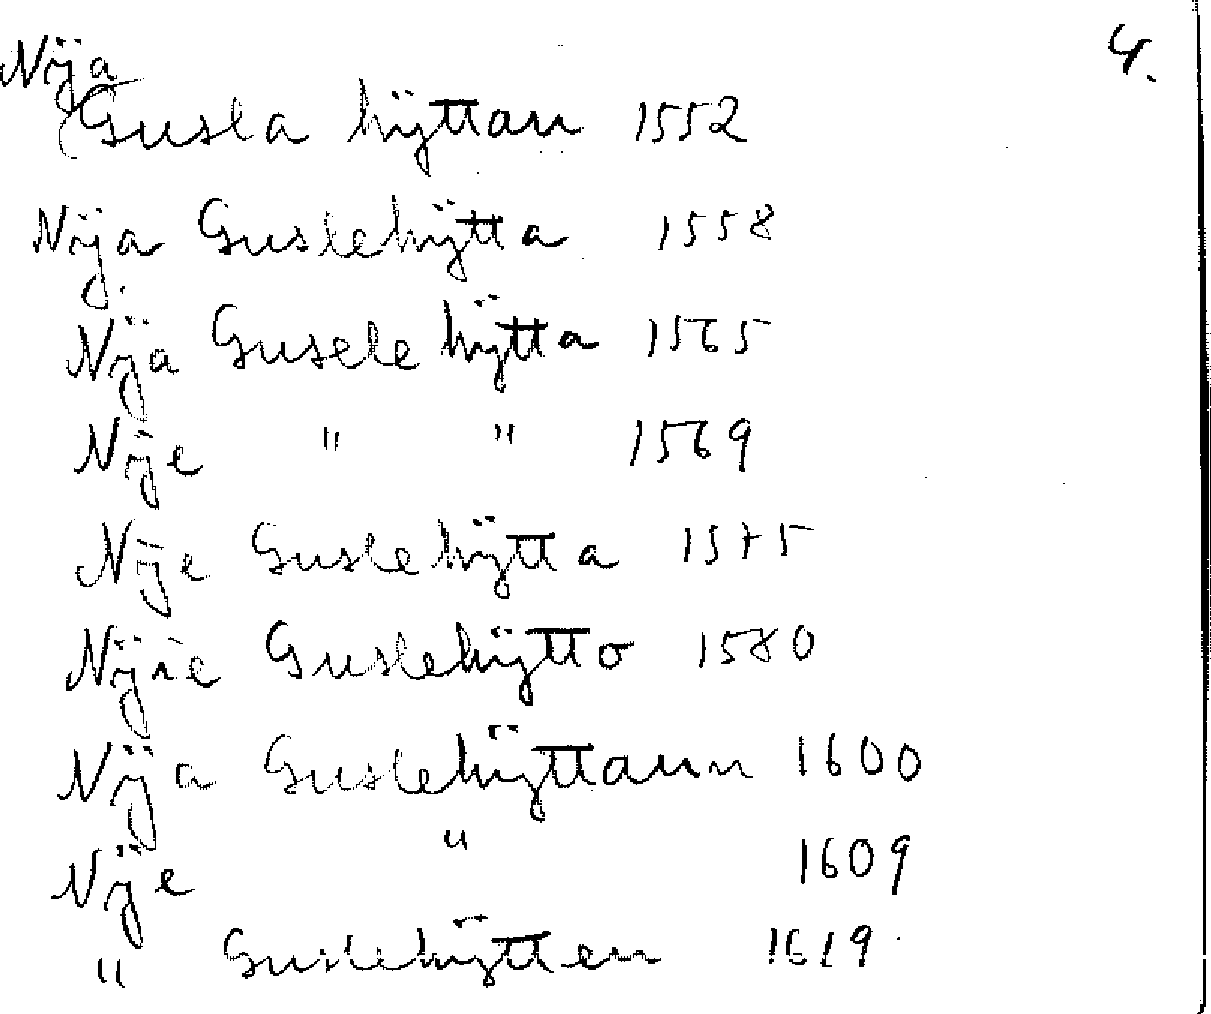 4.
Nÿa
(Gusla hÿttan 1552
Nÿa Guslehÿtta 1558
Nÿa Gusele hÿtta 1565
Nÿe " " 1569
Nÿe Guslehÿtta 1575
Nÿie Guslehÿtto 1580
Nÿa Guslehÿttann 1600
Nÿe " 1609
" Guslehÿtten 1619